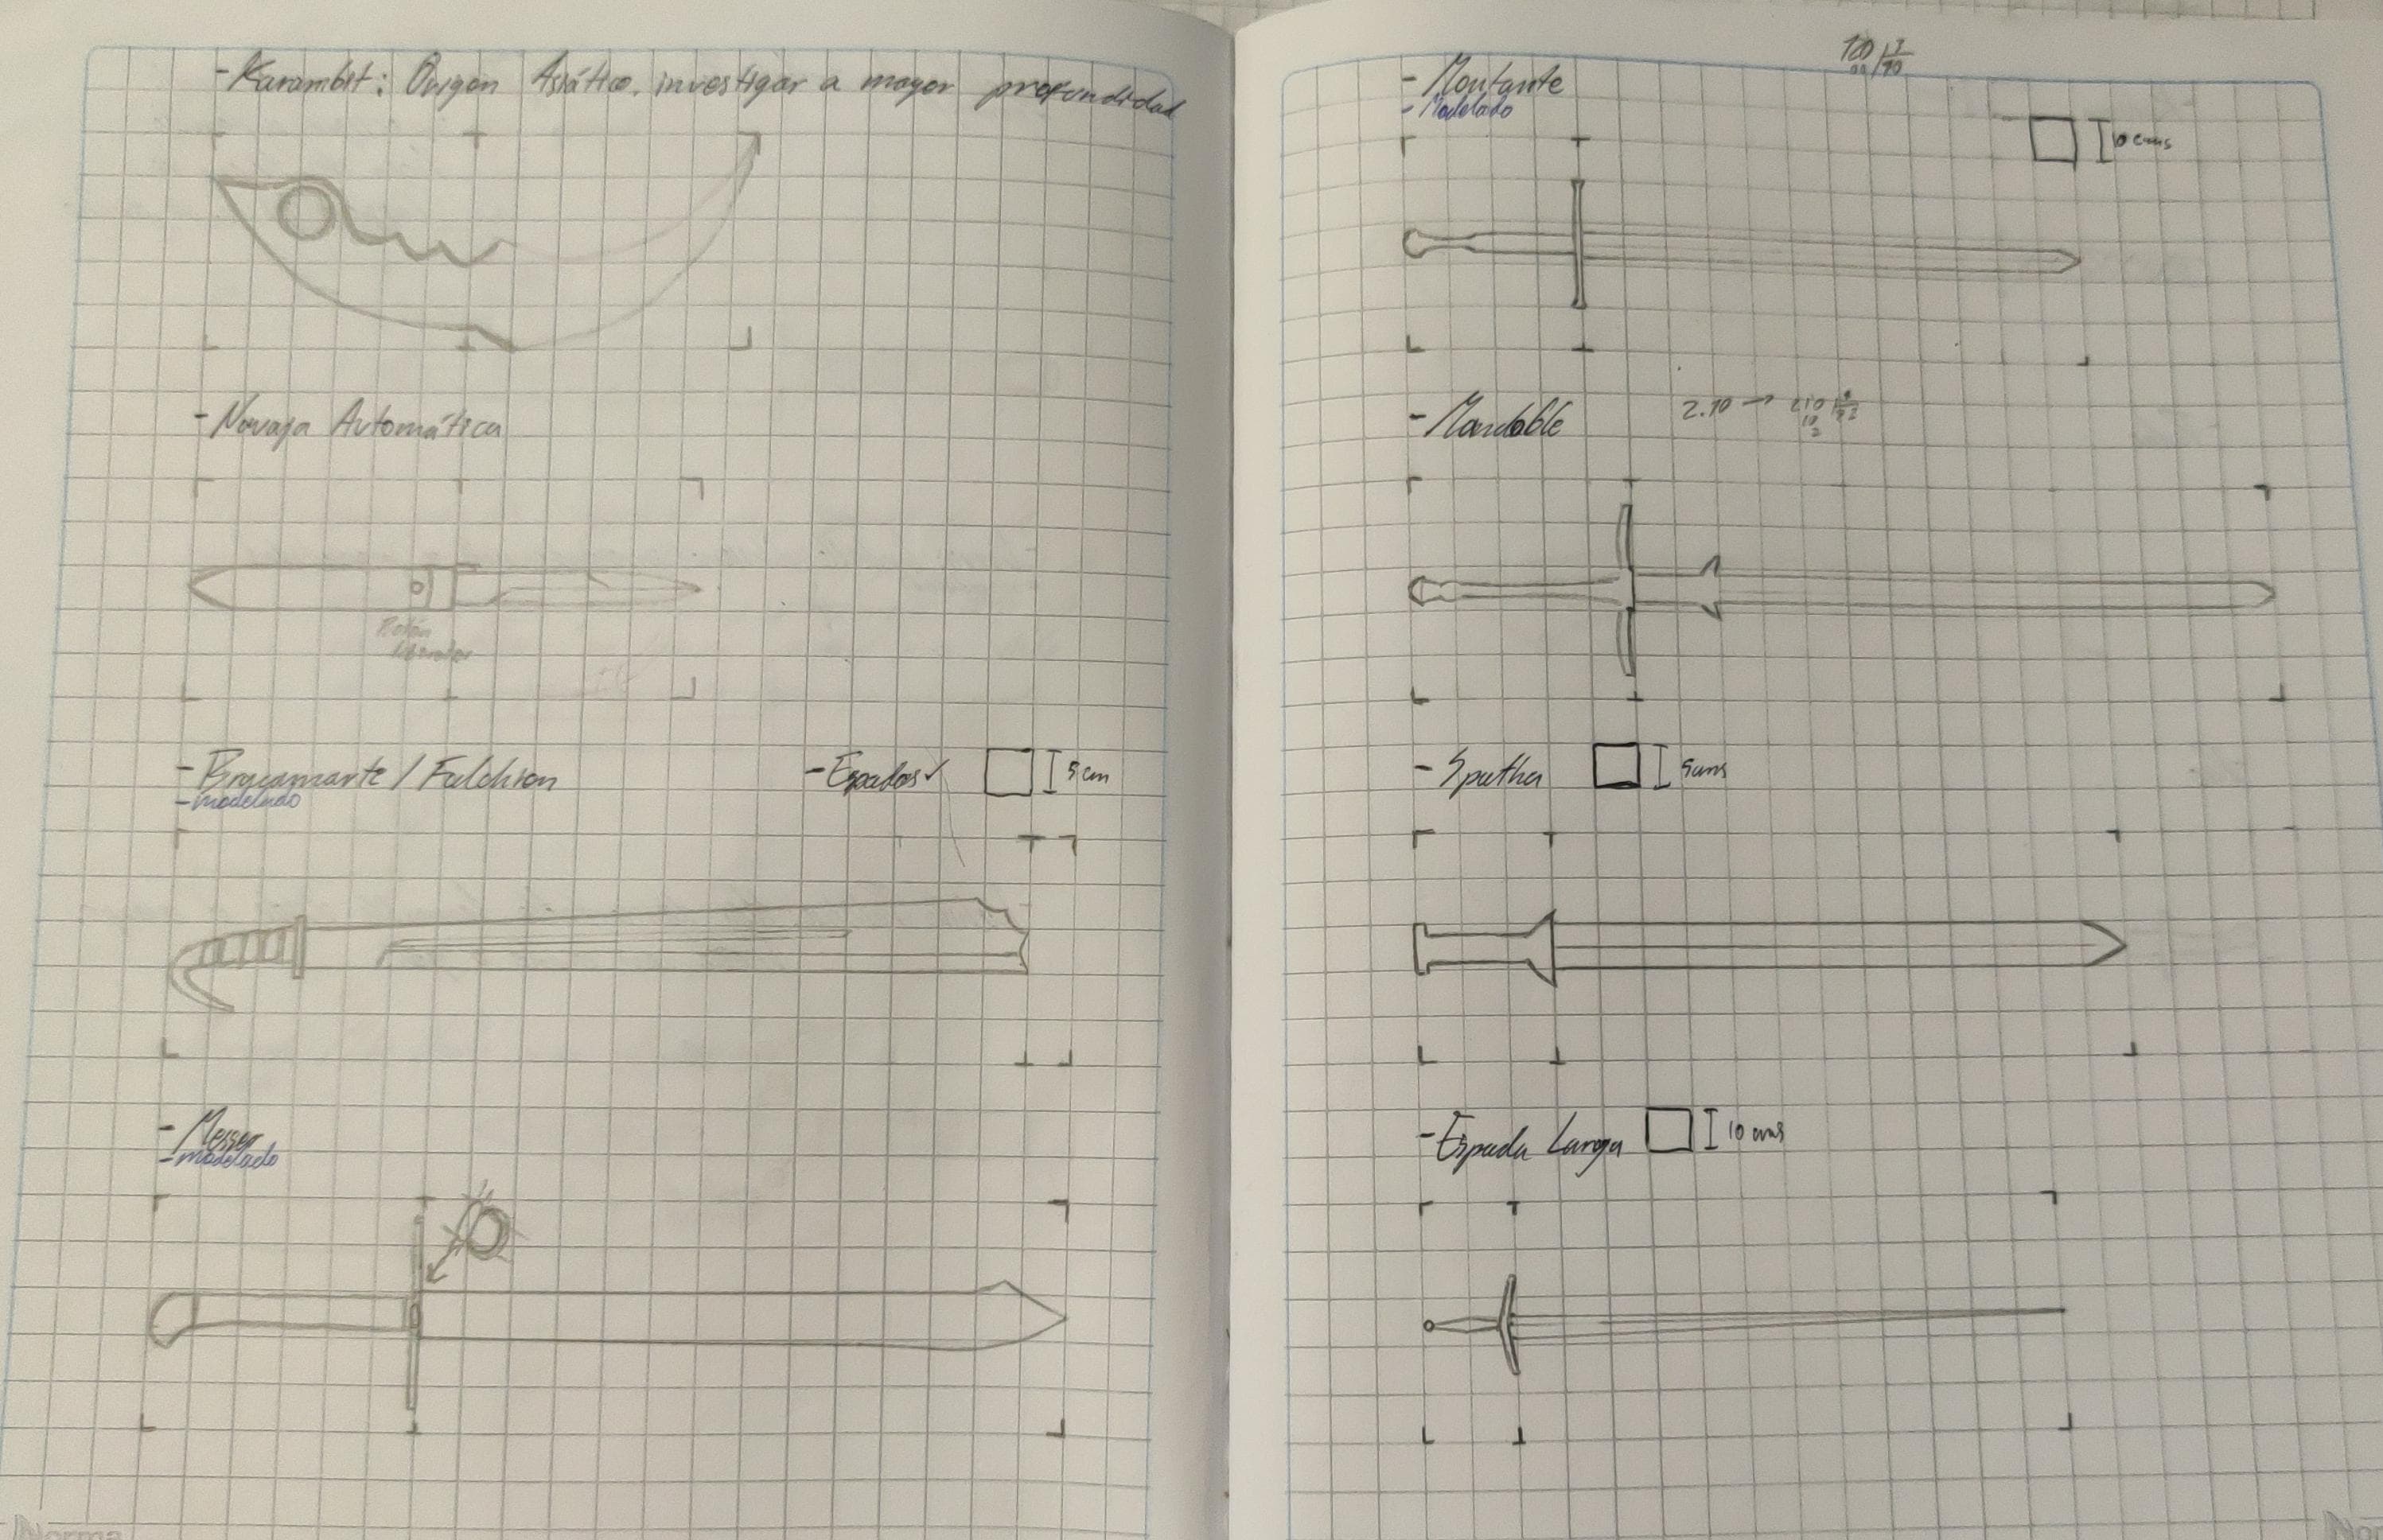 -Karambit: Origen Asiático, investigar a mayor profundidad
-Navaja Automática
Botón
liberador
-Bracamarte / Falchion
-modelado
-Espadas✓
5 cm
-Messer
-modelado
Norma
-Montante
-Modelado
10 cms
-Mandoble
2.10 → 210
-Spatha
5cms
-Espada Larga
10 cms